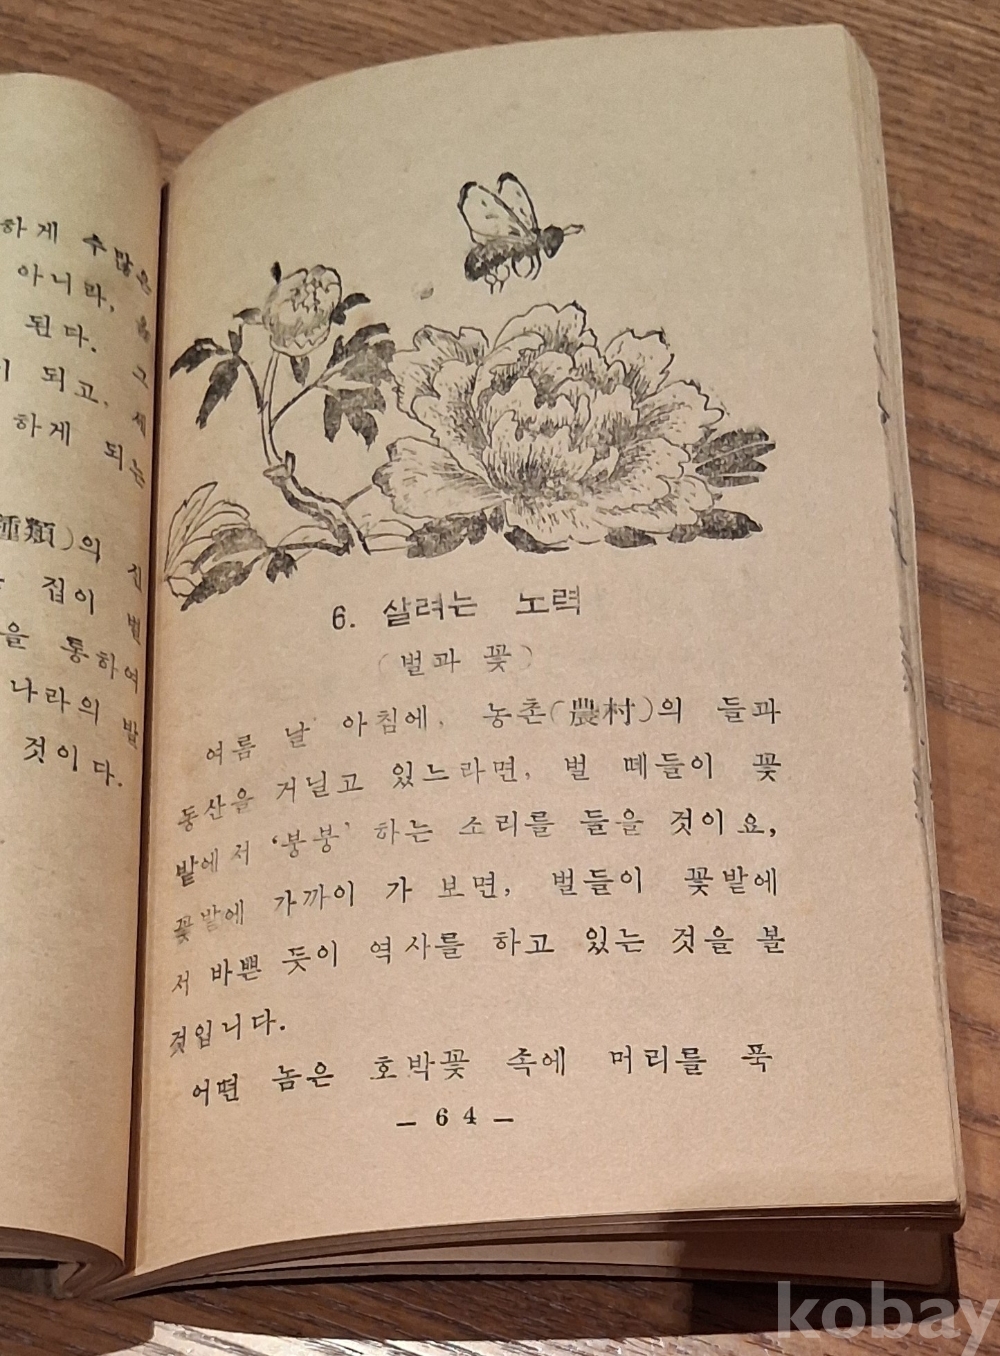 하게 수많은
아니라,
된다. 그
되고, 세
하게 되는
種類)의 진
집이 벌
을 통하여
나라의 발
것이다.
6. 살려는 노력
(벌과 꽃)
여름 날 아침에, 농촌(農村)의 들과
동산을 거닐고 있느라면, 벌 떼들이 꽃
밭에서 ‘붕붕’ 하는 소리를 들을 것이요,
꽃밭에 가까이 가 보면, 벌들이 꽃밭에
서 바쁜 듯이 역사를 하고 있는 것을 볼
것입니다.
어떤 놈은 호박꽃 속에 머리를 푹
— 64 —
kobay